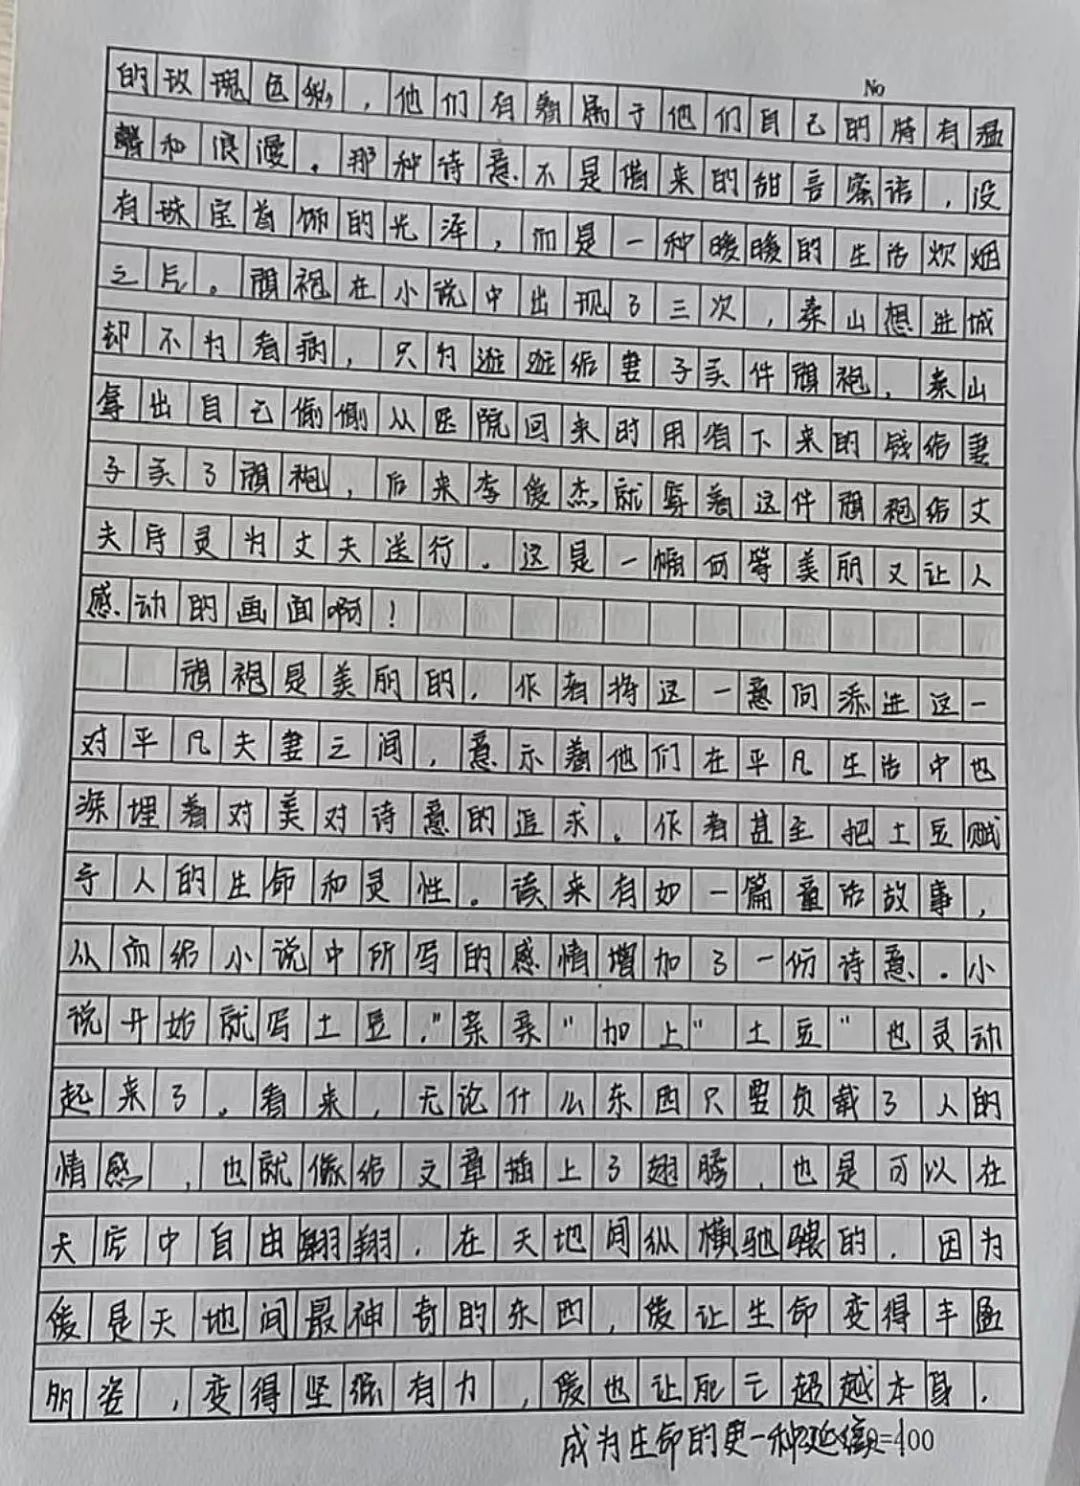 No
的玫瑰色彩，他们有着属于他们自己的特有温
馨和浪漫。那种诗意不是借来的甜言蜜语，没
有珠宝首饰的光泽，而是一种暖暖的生活炊烟
之气。旗袍在小说中出现了三次，秦山想进城
却不为看病，只为逛逛给妻子买件旗袍，秦山
拿出自己偷偷从医院回来时用省下来的钱给妻
子买了旗袍，后来李爱杰就穿着这件旗袍给丈
夫守灵为丈夫送行。这是一幅何等美丽又让人
感动的画面啊！
旗袍是美丽的，作者将这一意向添进这一
对平凡夫妻之间，意示着他们在平凡生活中也
深埋着对美对诗意的追求。作者甚至把土豆赋
予人的生命和灵性。读来有如一篇童话故事，
从而给小说中所写的感情增加了一份诗意。小
说开始就写土豆，"亲亲"加上"土豆"也灵动
起来了。看来，无论什么东西只要负载了人的
情感，也就像给文章插上了翅膀，也是可以在
天空中自由翱翔，在天地间纵横驰骋的，因为
爱是天地间最神奇的东西，爱让生命变得丰盈
多姿，变得坚强有力，爱也让死亡超越本身，
成为生命的更一种延续！=400